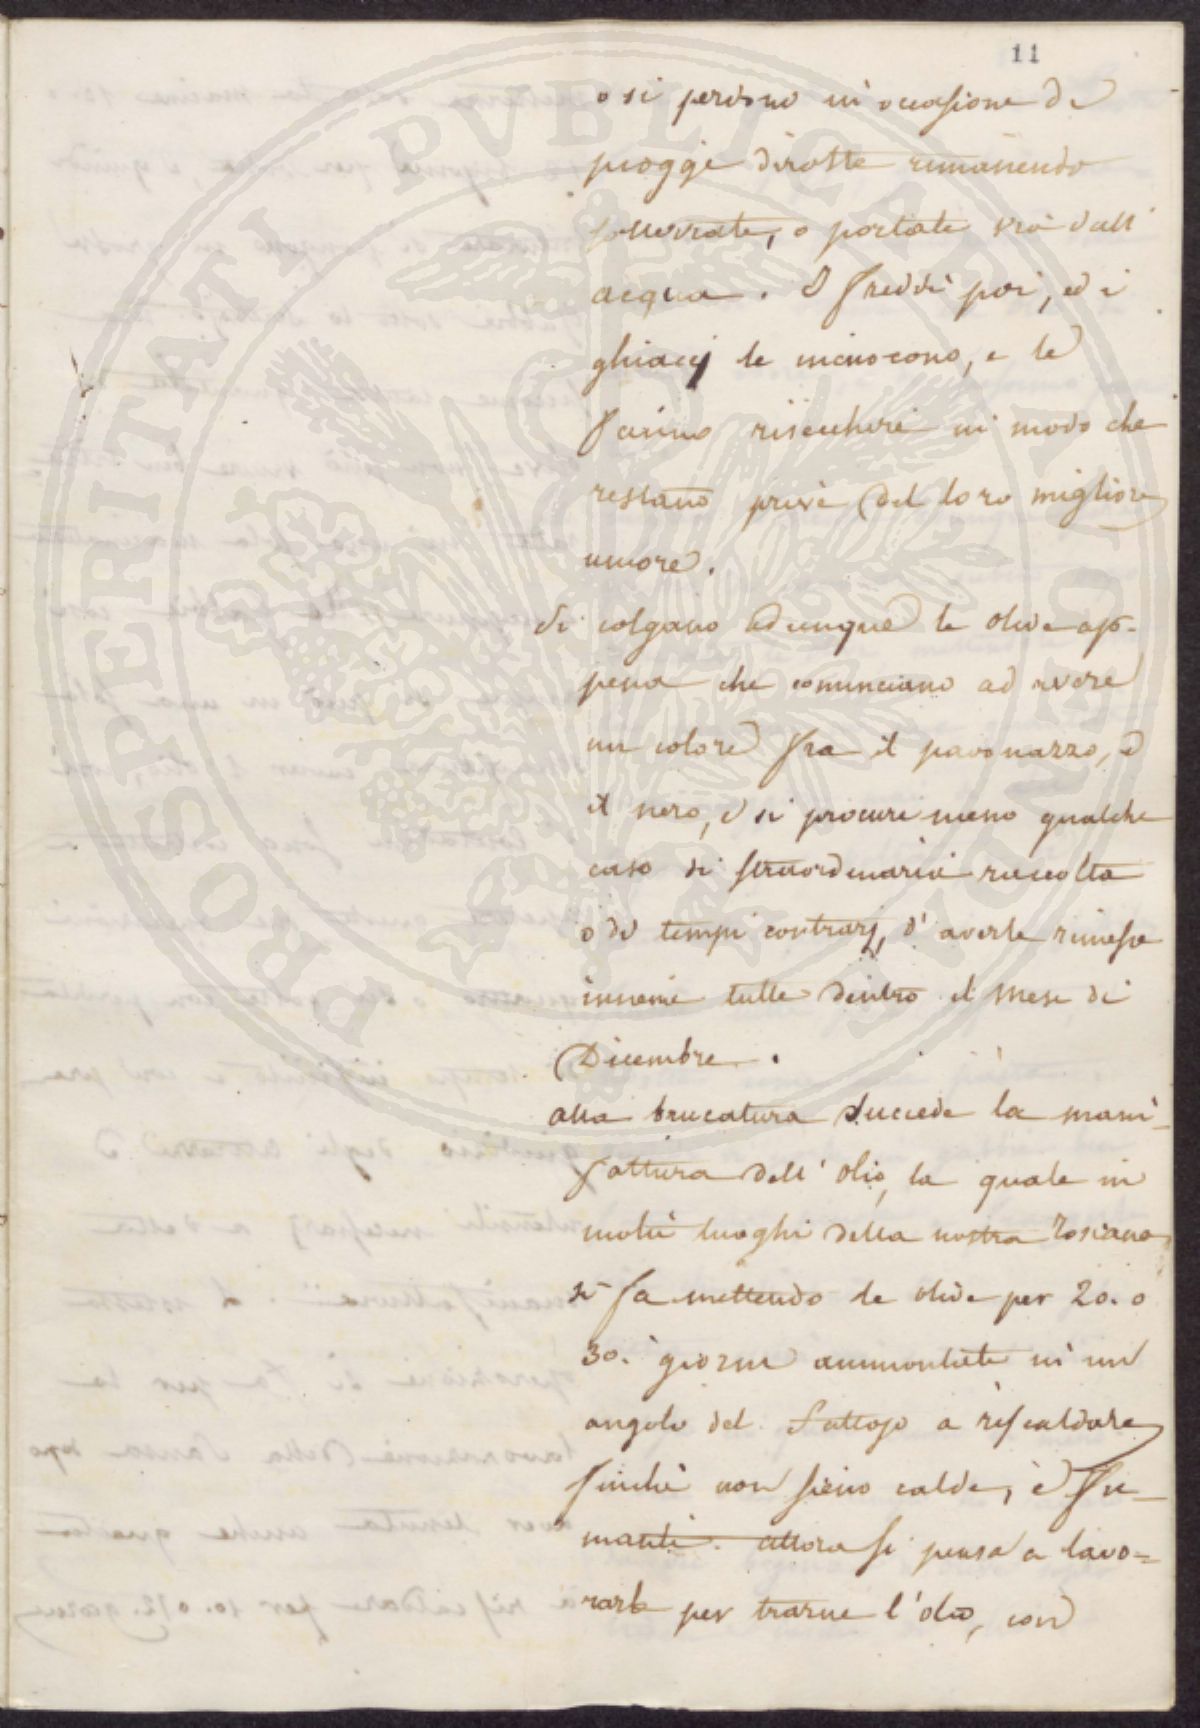 11
o si perdono in occasione di
piogge dirotte rimanendo
sotterrate, o portate via dall'
acqua. I freddi poi, ed i
ghiacci le incuocono, e le
fanno riseccare in modo che
restano prive del loro migliore
umore.
Si colgano adunque le olive ap-
pena che cominciano ad avere
un colore fra il pavonazzo, e
il nero, e si procuri meno qualche
caso di straordinaria raccolta
o di tempi contrarj, d'averle rimesse
insieme tutte dentro il mese di
Dicembre.
alla brucatura succede la mani-
fattura dell'olio, la quale in
molti luoghi della nostra Toscana
si fa mettendo le olive per 20. o
30. giorni ammontate in un
angolo del fattojo a riscaldare
finchè non sieno calde, e fu-
manti. allora si pensa a lavo-
rarle per trarne l'olio, con
PROSPERITATI PVBLICAE AVGENDAE